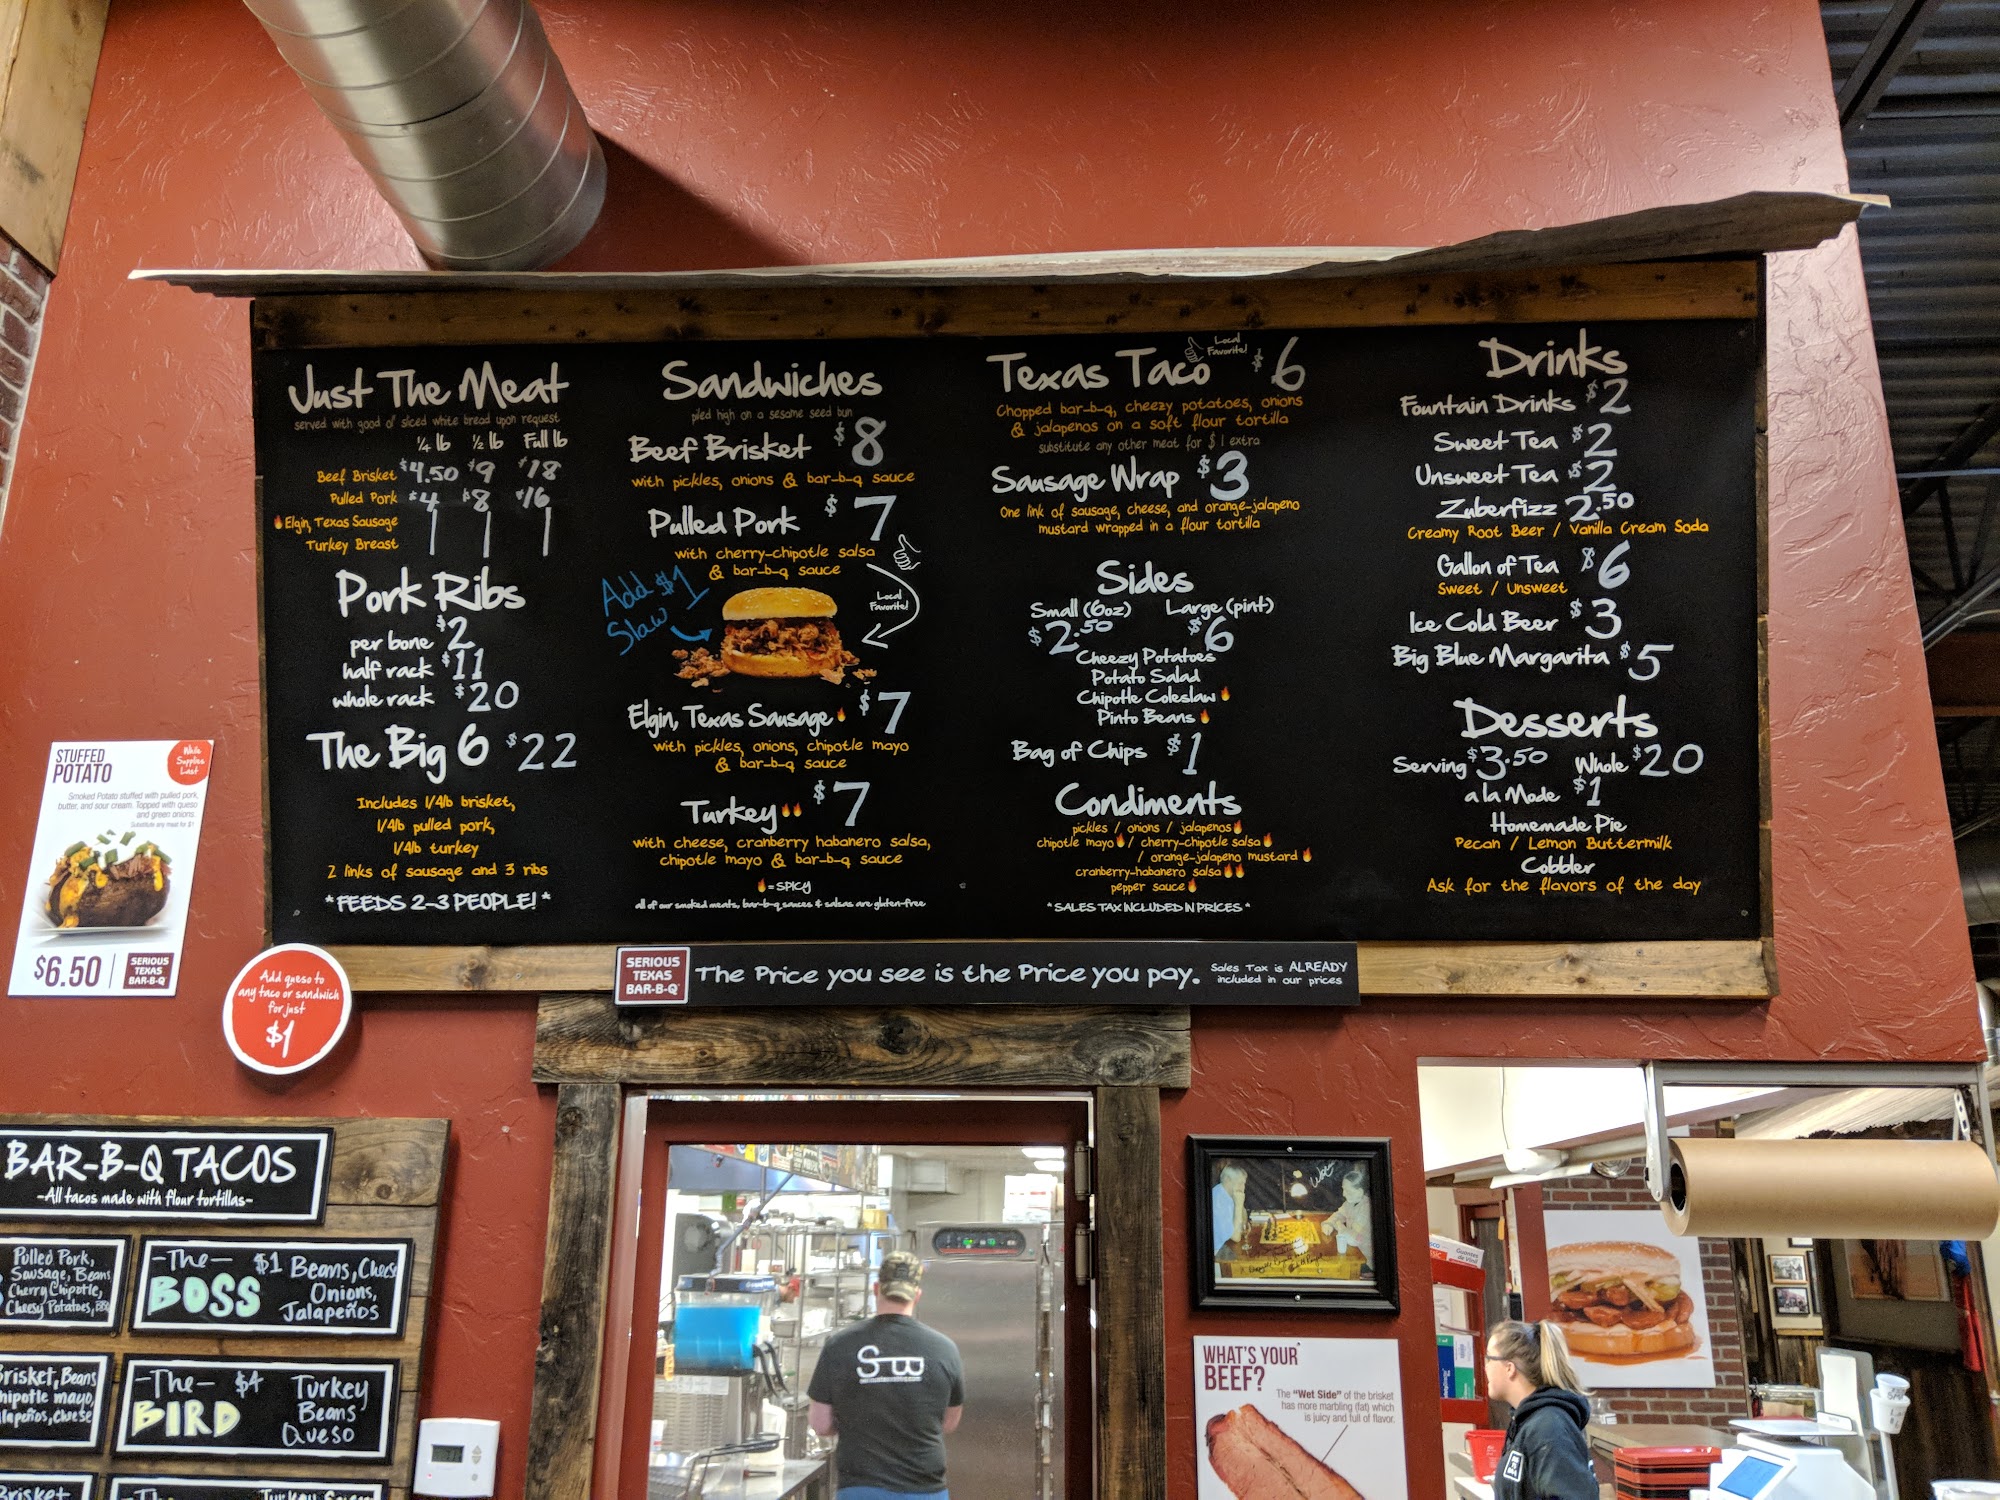 Just The Meat
served with good ol' sliced white bread upon request
1/4 lb 1/2 lb Full lb
Beef Brisket $4.50 $9 $18
Pulled Pork $4 $8 $16
Elgin, Texas Sausage
Turkey Breast
Pork Ribs
per bone $2
half rack $11
whole rack $20
The Big 6 $22
Includes 1/4lb brisket,
1/4lb pulled pork,
1/4lb turkey
2 links of sausage and 3 ribs
*FEEDS 2-3 PEOPLE!*
Sandwiches
piled high on a sesame seed bun
Beef Brisket $8
with pickles, onions & bar-b-q sauce
Pulled Pork $7
with cherry-chipotle salsa
& bar-b-q sauce
Add $1
Slaw
Local
Favorite!
Elgin, Texas Sausage $7
with pickles, onions, chipotle mayo
& bar-b-q sauce
Turkey $7
with cheese, cranberry habanero salsa,
chipotle mayo & bar-b-q sauce
= SPICY
all of our smoked meats, bar-b-q sauces & salsas are gluten-free
Texas Taco $6
Local
Favorite!
Chopped bar-b-q, cheezy potatoes, onions
& jalapenos on a soft flour tortilla
substitute any other meat for $1 extra
Sausage Wrap $3
One link of sausage, cheese, and orange-jalapeno
mustard wrapped in a flour tortilla
Sides
Small (6oz) Large (pint)
$2.50 $6
Cheezy Potatoes
Potato Salad
Chipotle Coleslaw
Pinto Beans
Bag of Chips $1
Condiments
pickles / onions / jalapenos
chipotle mayo / cherry-chipotle salsa
/ orange-jalapeno mustard
cranberry-habanero salsa
pepper sauce
*SALES TAX INCLUDED IN PRICES*
Drinks
Fountain Drinks $2
Sweet Tea $2
Unsweet Tea $2
Zuberfizz 2.50
Creamy Root Beer / Vanilla Cream Soda
Gallon of Tea $6
Sweet / Unsweet
Ice Cold Beer $3
Big Blue Margarita $5
Desserts
Serving $3.50 Whole $20
a la Mode $1
Homemade Pie
Pecan / Lemon Buttermilk
Cobbler
Ask for the flavors of the day
SERIOUS
TEXAS
BAR-B-Q
The Price you see is the Price you pay.
Sales Tax is ALREADY
included in our prices
STUFFED
POTATO
While
Supplies
Last
Smoked Potato stuffed with pulled pork,
butter, and sour cream. Topped with queso
and green onions.
Substitute any meat for $1
$6.50
SERIOUS
TEXAS
BAR-B-Q
Add queso to
any taco or sandwich
for just
$1
BAR-B-Q TACOS
-All tacos made with flour tortillas-
Pulled Pork,
Sausage, Beans
Cherry Chipotle,
Cheesy Potatoes, BBQ
-The-
BOSS
$1 Beans, Cheese
Onions,
Jalapeños
Brisket, Beans
Chipotle mayo,
Jalapeños, Cheese
-The-
BIRD
$4
Turkey
Beans
Queso
Brisket
-The-
WHAT'S YOUR
BEEF?
The "Wet Side" of the brisket
has more marbling (fat) which
is juicy and full of flavor.